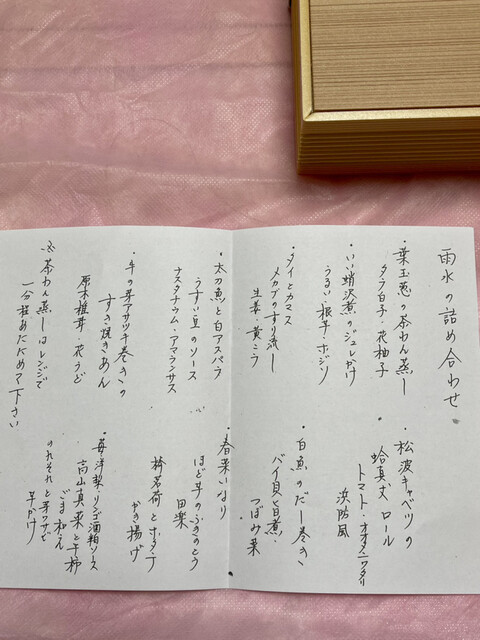 雨水の詰め合わせ
・葉玉葱の茶わん蒸し
タラ白子・花柚子
・いい蛸沢煮のジュレがけ
うるい・根芋・ホジソ
・タイとカマス
メカブのすり流し
生姜・黄こう
・松波キャベツの
蛤真丈ロール
トマト・オオタニワタリ
浜防風
・白魚のだし巻き
バイ貝旨煮・
つぼみ菜
・太刀魚と白アスパラ
うすい豆のソース
ナスタチウム・アマランサス
・牛の芽アサツキ巻きの
すき焼きあん
原木椎茸・花うど
※茶わん蒸しはレンジで
一分程あたためて下さい
・春菜いなり
ほど芋のふきのとう
田楽
・茗荷とホタテ
かき揚げ
・苺洋梨・リンゴ酒粕ソース
・高山真菜と干柿
ごま和え
のれそれと芽ワサビ
芋がけ